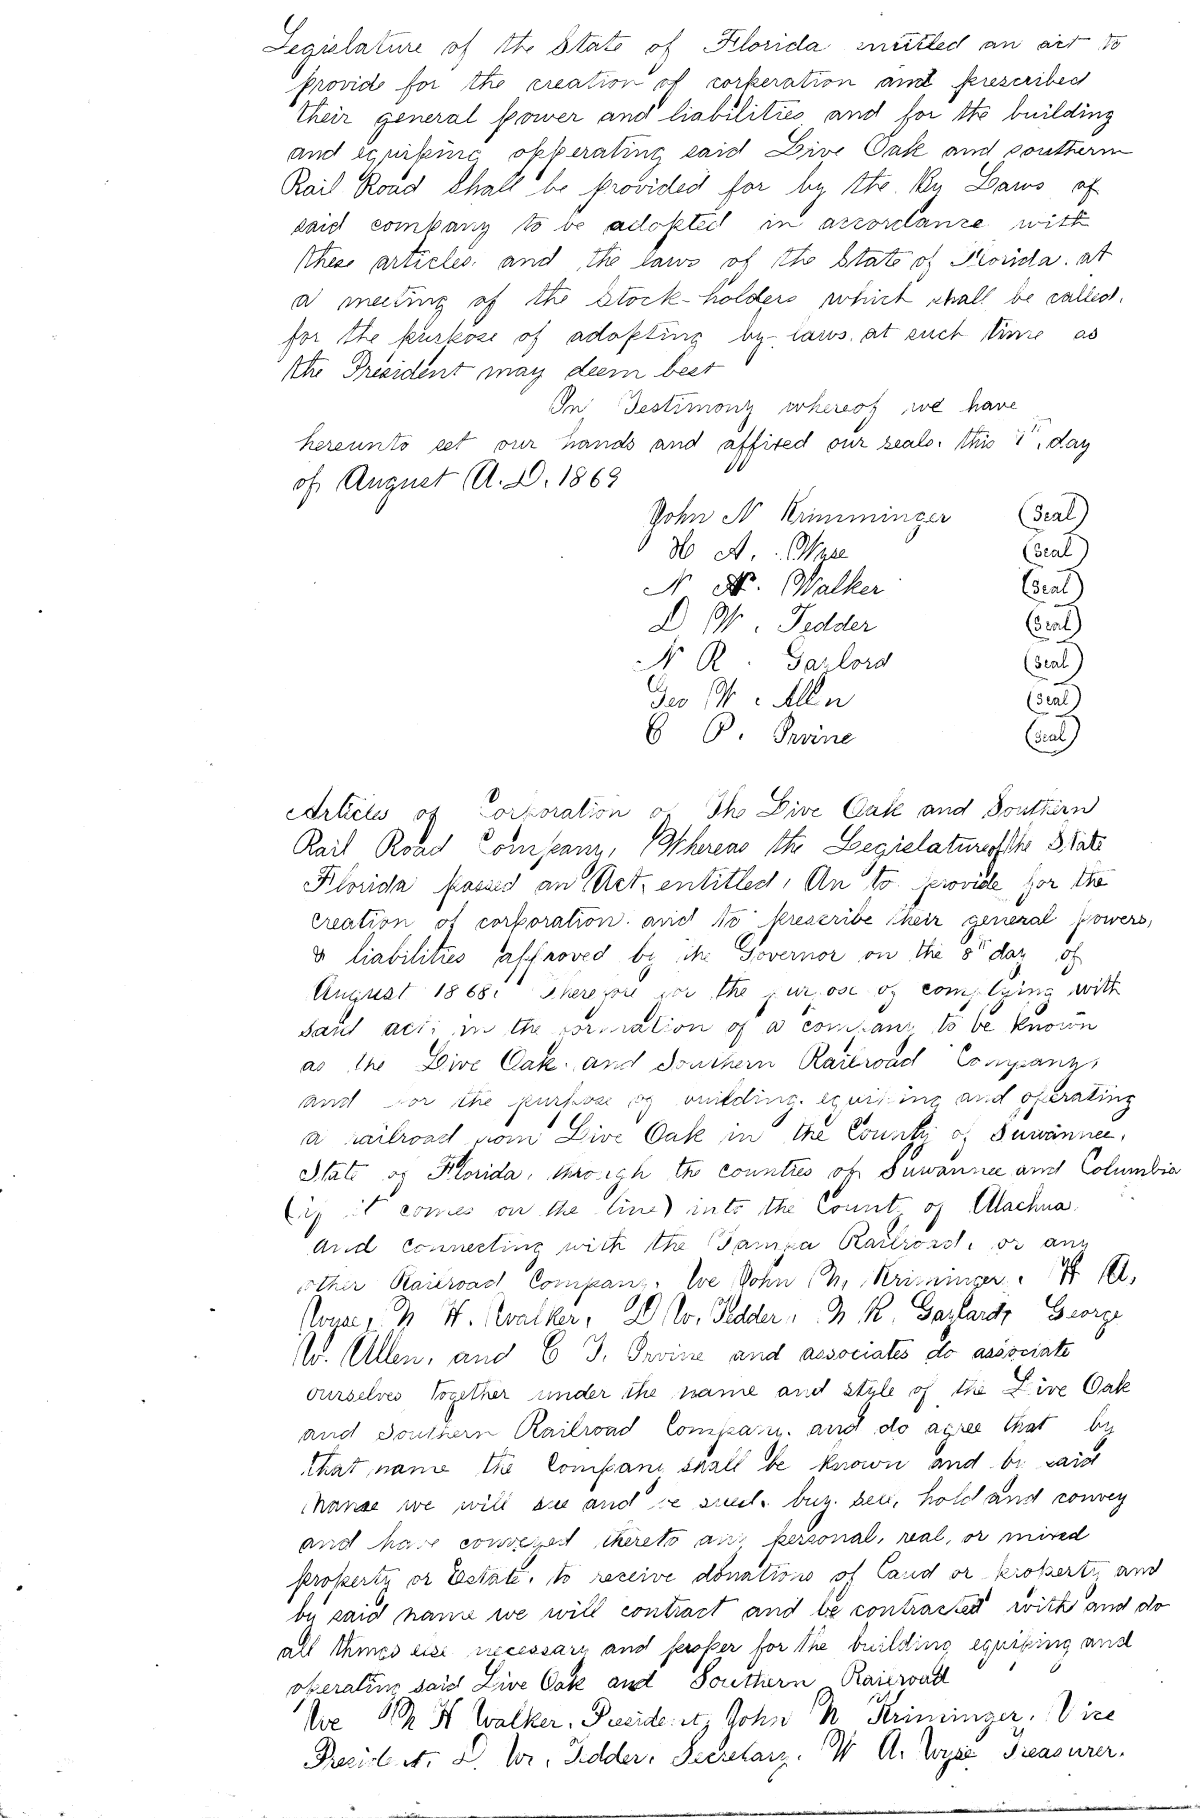 Legislature of the State of Florida entitled an act to
provide for the creation of corperation and prescribed
their general power and liabilities and for the building
and equiping opperating said Live Oak and southern
Rail Road shall be provided for by the By Laws of
said company to be adopted in accordance with
these articles and the laws of the State of Florida. at
a meeting of the Stock-holders which shall be called.
for the purpose of adopting by-laws. at such time as
the President may deem best
In Testimony whereof we have
hereunto set our hands and affixed our seals. this day
of August A.D. 1869
John N Krimminger (Seal)
H A. Wyse (Seal)
N H. Walker (Seal)
D W. Tedder (Seal)
N R. Gaylord (Seal)
Geo W. Allen (Seal)
C P. Irvine (Seal)
Articles of Corporation of The Live Oak and Southern
Rail Road Company, Whereas the Legislature of the State
Florida passed an Act, entitled, An to provide for the
creation of corporation and to prescribe their general powers,
& liabilities approved by the Governor on the 8th day of
August 1868. Therefore for the purpose of complying with
said act, in the formation of a company to be known
as the Live Oak and Southern Railroad Company,
and for the purpose of building. equiping and operating
a railroad from Live Oak in the County of Suwannee,
State of Florida, through the counties of Suwannee and Columbia
(if it comes on the line) into the County of Alachua.
and connecting with the Tampa Railroad, or any
other Railroad Company. We John N. Krimminger. H A.
Wyse, N H. Walker, D W. Tedder, N R. Gaylard, George
W. Allen, and C J. Irvine and associates do associate
ourselves together under the name and style of the Live Oak
and Southern Railroad Company. and do agree that by
that name the Company shall be known and by said
we will sue and be sued. buy. sell, hold and convey
and have conveyed thereto any personal, real, or mixed
property or Estate. to receive donations of land or property and
by said name we will contract and be contracted with and do
all things else necessary and proper for the building equiping and
operating said Live Oak and Southern Railroad
We N H Walker, President, John N Krimminger. Vice
President. D. W. Tedder. Secretary. W A. Wyse Treasurer.